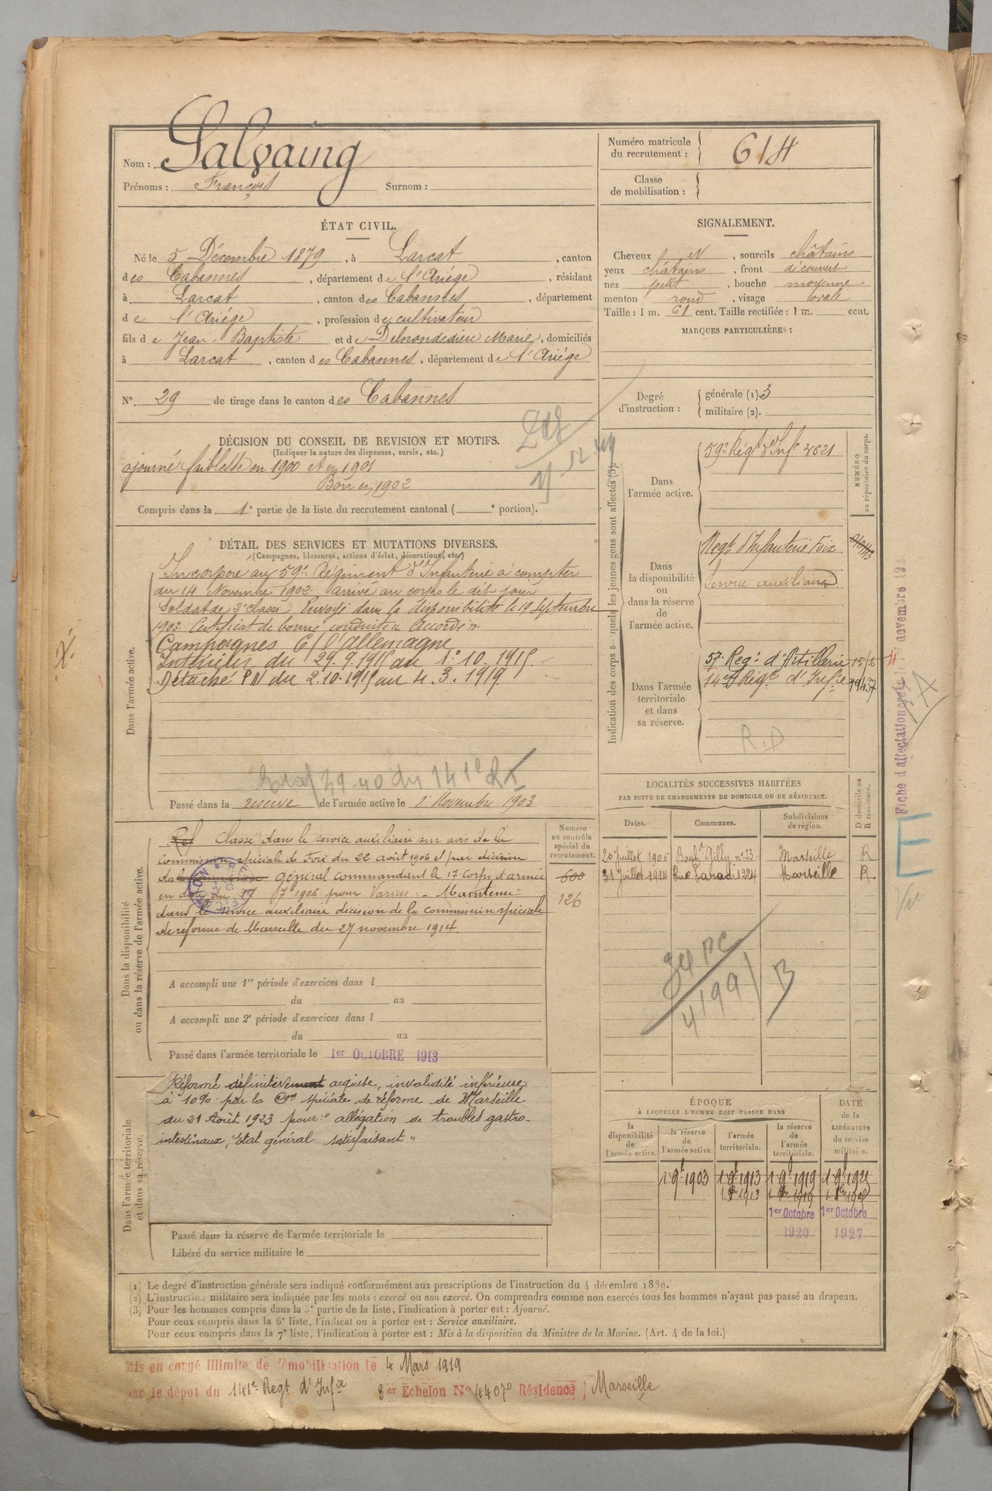 Nom : Salvaing
Prénoms : François Surnom :
Numéro matricule du recrutement : 614
Classe de mobilisation :
ÉTAT CIVIL.
Né le 5 Décembre 1879, à Larcat, canton
des Cabannes, département de l'Ariége, résidant
à Larcat, canton des Cabannes, département
de l'Ariége, profession de cultivateur
fils de Jean Baptiste et de Marie, domiciliés
à Larcat, canton des Cabannes, département de l'Ariége
N° 29 de tirage dans le canton des Cabannes
SIGNALEMENT.
Cheveux N, sourcils châtains
yeux châtains, front découvert
nez petit, bouche moyenne
menton rond, visage ovale
Taille : 1 m. 61 cent. Taille rectifiée : 1 m. cent.
MARQUES PARTICULIÈRES :
Degré d'instruction : générale (1) 3
militaire (2).
DÉCISION DU CONSEIL DE REVISION ET MOTIFS.
(Indiquer la nature des dispenses, sursis, etc.)
ajourné faiblesse en 1900 et en 1901
Bon en 1902
Compris dans la 1e partie de la liste du recrutement cantonal ( e portion).
DÉTAIL DES SERVICES ET MUTATIONS DIVERSES.
(Campagnes, blessures, actions d'éclat, décorations, etc.)
Dans l'armée active.
Incorporé au 59e Régiment d'Infanterie à compter
du 14 Novembre 1902, arrivé au corps le dit jour
Soldat de 2e classe. Envoyé dans la disponibilité le 19 Septembre
1903 Certificat de bonne conduite Accordé
Campagnes C/ l'allemagne
Intérieur du 29.9.1915 au 1.10.1915
Détaché du 2.10.1915 au 4.3.1919
Passé dans la réserve de l'armée active le 1 Novembre 1903
Indication des corps auxquels les jeunes gens sont affectés (3).
NUMÉRO au répertoire du corps.
Dans l'armée active.
59e Régt d'Inf
Dans la disponibilité ou dans la réserve de l'armée active.
Régt d'Infanterie Foix
Service auxiliaire
Dans l'armée territoriale et dans sa réserve.
57e Reg. d'Artillerie
R.D
Dans la disponibilité ou dans la réserve de l'armée active.
Numéro au contrôle spécial du recrutement.
600
126
Classé dans le service auxiliaire sur avis de la
commission spéciale de Foix du 22 août 1906 et par décision
général commandant le 17 Corps d'armée
1906 pour Varices - Maintenu
dans le service auxiliaire décision de la commission spéciale
de réforme de Marseille du 27 novembre 1914.
A accompli une 1re période d'exercices dans l
du au
A accompli une 2e période d'exercices dans l
du au
Passé dans l'armée territoriale le 1er OCTOBRE 1913
LOCALITÉS SUCCESSIVES HABITÉES
PAR SUITE DE CHANGEMENTS DE DOMICILE OU DE RÉSIDENCE.
D domicile ou R résidence.
Dates. Communes. Subdivisions de région.
Marseille R
31 Juillet 1914 Rue Paradis 224 Marseille R
Dans l'armée territoriale et dans sa réserve.
Réformé définitivement invalidité inférieure
à 10% par la Con spéciale de réforme de Marseille
du 21 Août 1923 pour "allégation de troubles gastro-
intestinaux, Etat général satisfaisant"
Passé dans la réserve de l'armée territoriale le
Libéré du service militaire le
ÉPOQUE
À LAQUELLE L'HOMME DOIT PASSER DANS
DATE de la LIBÉRATION du service militaire.
la disponibilité de l'armée active. la réserve de l'armée active. l'armée territoriale. la réserve de l'armée territoriale.
1er Octobre 1920 1er Octobre 1927
(1) Le degré d'instruction générale sera indiqué conformément aux prescriptions de l'instruction du 4 décembre 1889.
(2) L'instruction militaire sera indiquée par les mots : exercé ou non exercé. On comprendra comme non exercés tous les hommes n'ayant pas passé au drapeau.
(3) Pour les hommes compris dans la 5e partie de la liste, l'indication à porter est : Ajourné.
Pour ceux compris dans la 6e liste, l'indication à porter est : Service auxiliaire.
Pour ceux compris dans la 7e liste, l'indication à porter est : Mis à la disposition du Ministre de la Marine. (Art. 4 de la loi.)
Mis en congé illimité de démobilisation le 4 Mars 1919
par le dépôt du 141e Regt d'Infie Echelon N° 4407 Résidence Marseille